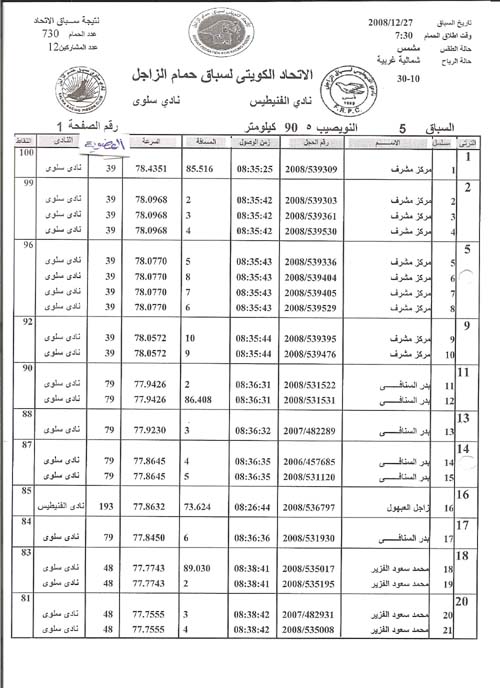 تاريخ السباق 2008/12/27
وقت اطلاق الحمام 7:30
حالة الطقس مشمس
حالة الرياح شمالية غربية
30-10
نتيجة سباق الاتحاد
عدد الحمام 730
عدد المشتركين 12
الاتحاد الكويتى لسباق حمام الزاجل
نادي الفنيطيس
نادي سلوى
F.R.P.C.
السباق 5 النويصيب ٥ 90 كيلومتر رقم الصفحة 1
الترتى تسلسل الاســـم رقم الحجل زمن الوصول المسافة السرعة العضوية النادى النقاط
1 100
1 مركز مشرف 2008/539309 08:35:25 85.516 78.4351 39 نادي سلوى
2 99
2 مركز مشرف 2008/539303 08:35:42 2 78.0968 39 نادي سلوى
3 مركز مشرف 2008/539361 08:35:42 3 78.0968 39 نادي سلوى
4 مركز مشرف 2008/539530 08:35:42 4 78.0968 39 نادي سلوى
5 96
5 مركز مشرف 2008/539336 08:35:43 5 78.0770 39 نادي سلوى
6 مركز مشرف 2008/539404 08:35:43 8 78.0770 39 نادي سلوى
7 مركز مشرف 2008/539405 08:35:43 7 78.0770 39 نادي سلوى
8 مركز مشرف 2008/539529 08:35:43 6 78.0770 39 نادي سلوى
9 92
9 مركز مشرف 2008/539395 08:35:44 10 78.0572 39 نادي سلوى
10 مركز مشرف 2008/539476 08:35:44 9 78.0572 39 نادي سلوى
11 90
11 بدر السنافـــى 2008/531522 08:36:31 2 77.9426 79 نادي سلوى
12 بدر السنافـــى 2008/531531 08:36:31 86.408 77.9426 79 نادي سلوى
13 88
13 بدر السنافـــى 2007/482289 08:36:32 3 77.9230 79 نادي سلوى
14 87
14 بدر السنافـــى 2006/457685 08:36:35 4 77.8645 79 نادي سلوى
15 بدر السنافـــى 2008/531120 08:36:35 5 77.8645 79 نادي سلوى
16 85
16 زاجل العبهول 2008/536797 08:26:44 73.624 77.8632 193 نادى الفنيطيس
17 84
17 بدر السنافـــى 2008/531930 08:36:36 6 77.8450 79 نادي سلوى
18 83
18 محمد سعود الفزير 2008/535017 08:38:41 89.030 77.7743 48 نادي سلوى
19 محمد سعود الفزير 2008/535195 08:38:41 2 77.7743 48 نادي سلوى
20 81
20 محمد سعود الفزير 2007/482931 08:38:42 3 77.7555 48 نادي سلوى
21 محمد سعود الفزير 2008/535008 08:38:42 4 77.7555 48 نادي سلوى